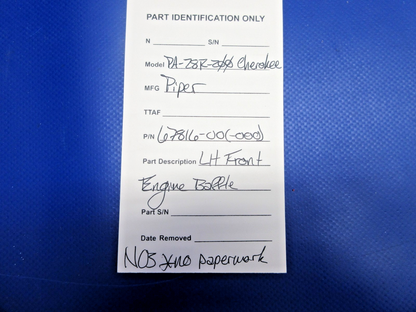 PART IDENTIFICATION ONLY
N S/N
Model PA-28R-200 Cherokee
MFG Piper
TTAF
P/N 67816-00(-000)
Part Description LH Front
Engine Baffle
Part S/N
Date Removed
NOS *no paperwork